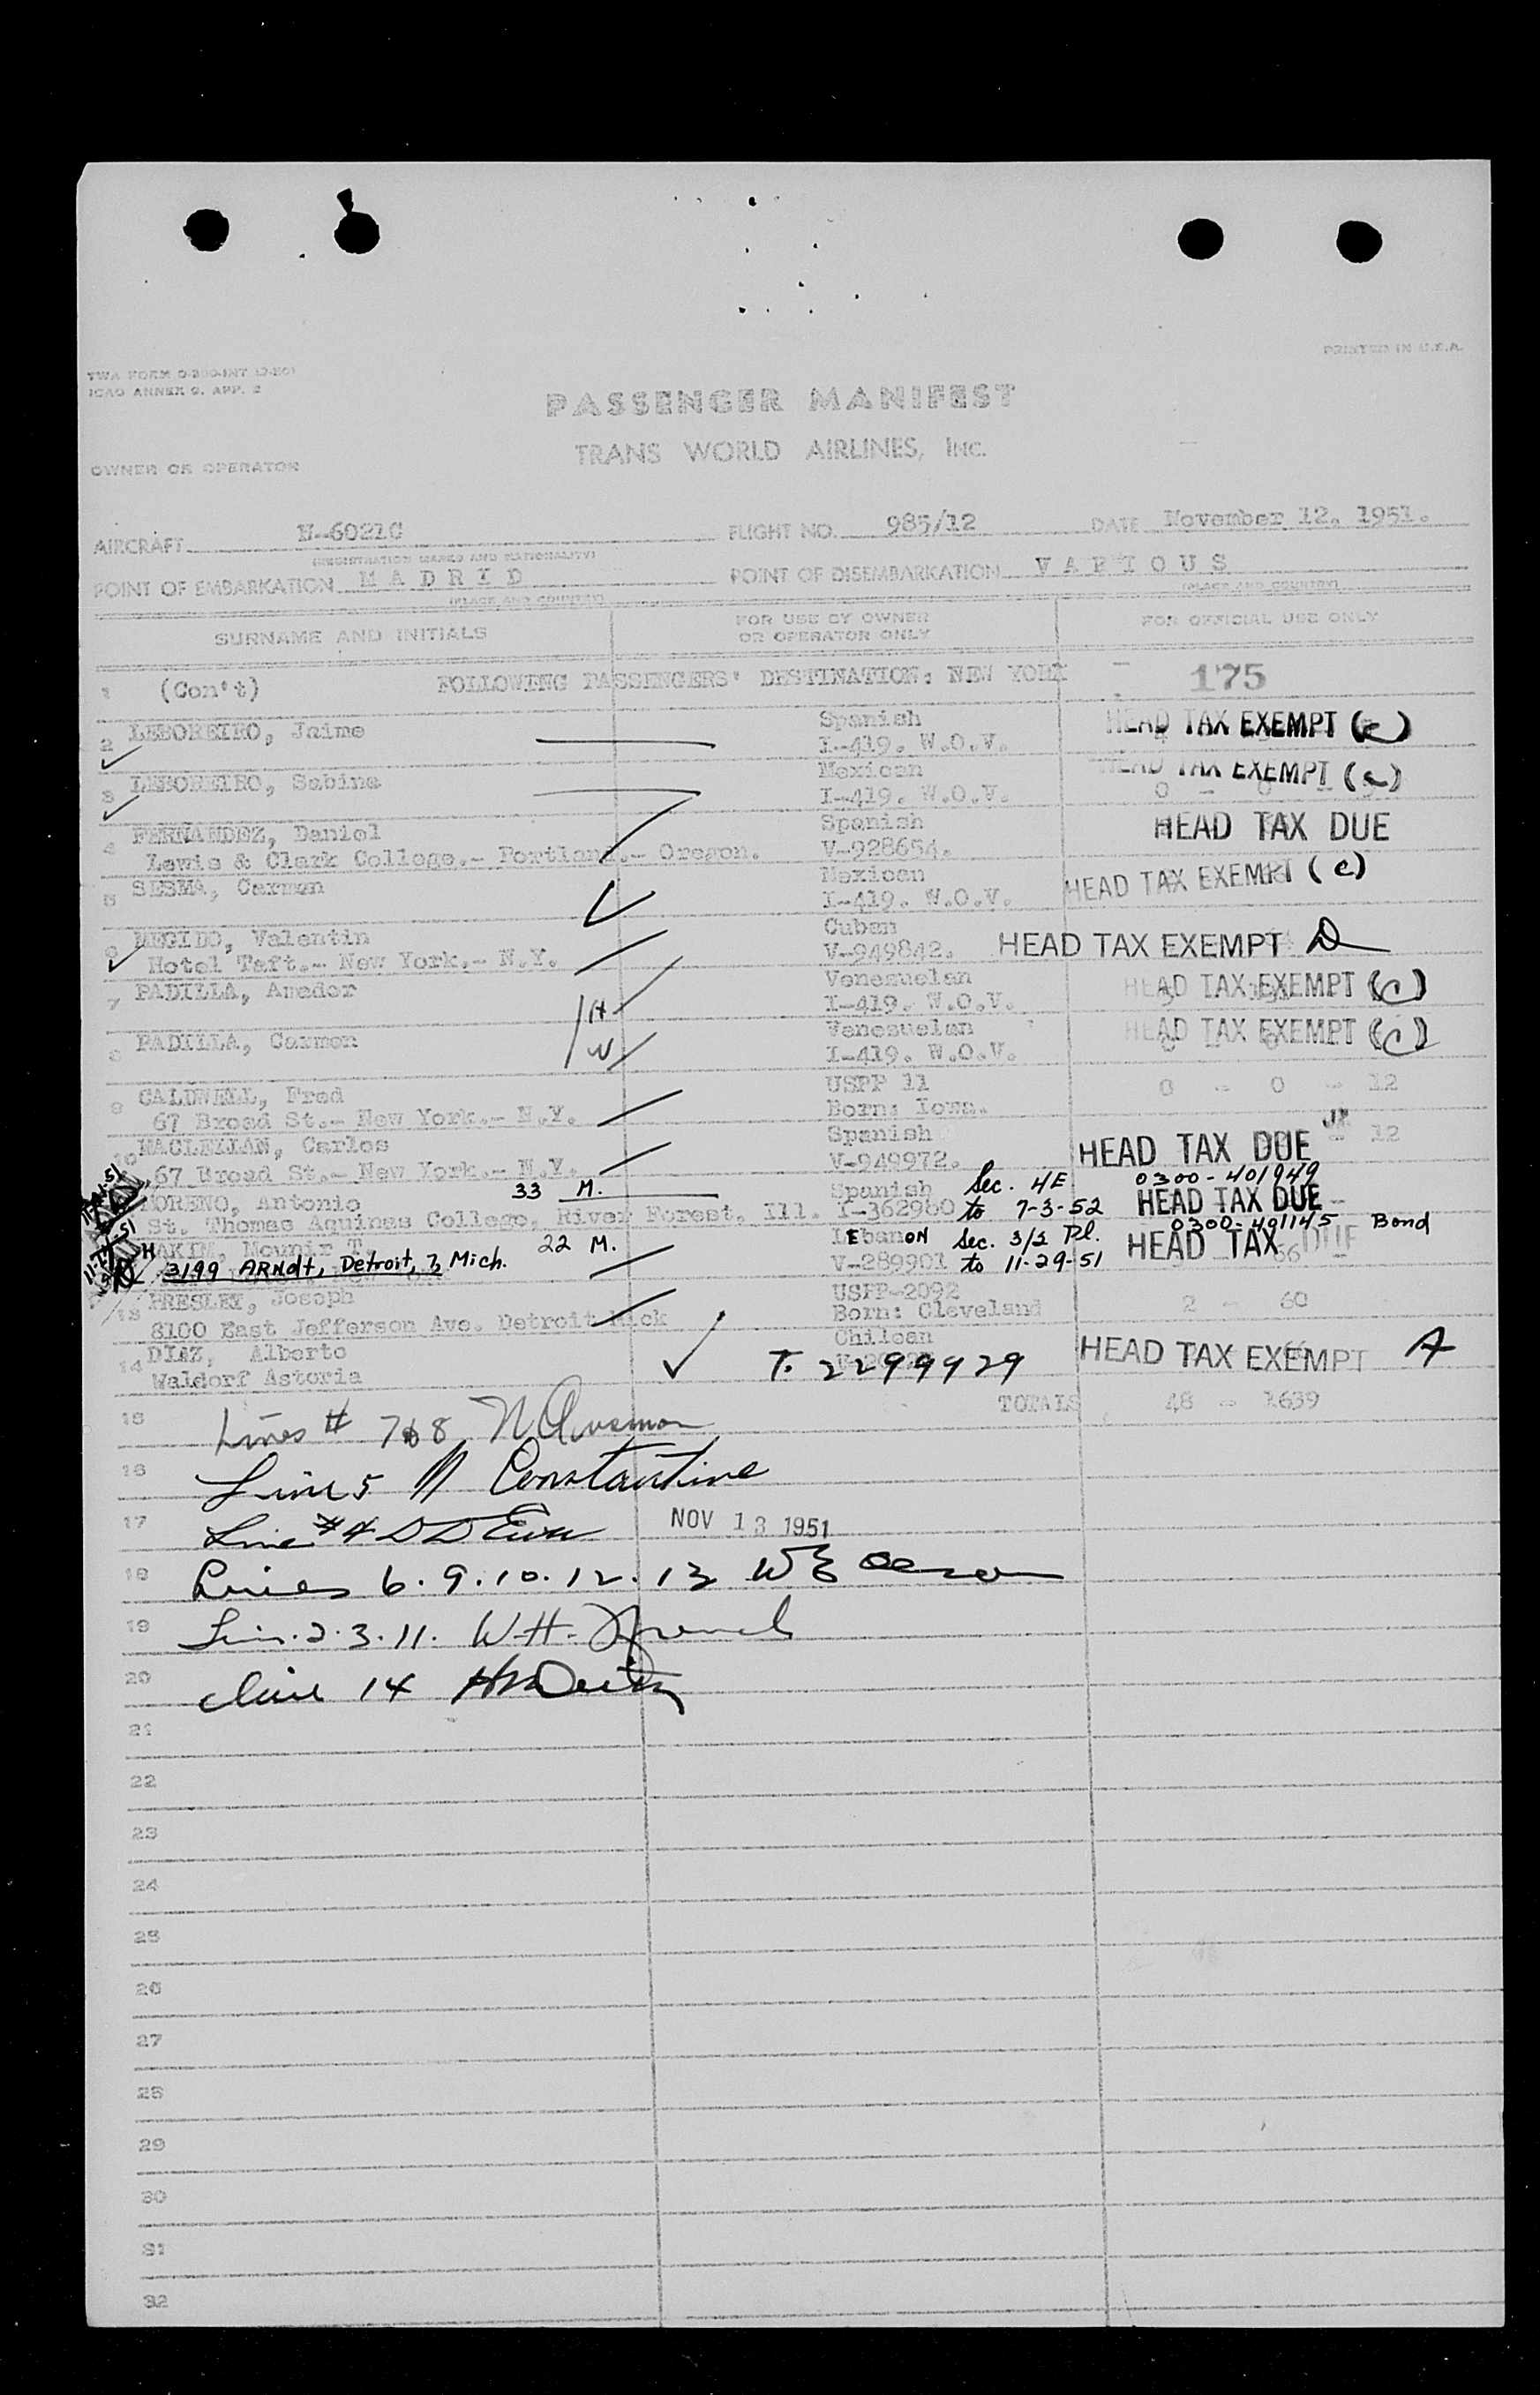 PRINTED IN U.S.A.
ICAO ANNEX 9, APP. 2
PASSENGER MANIFEST
TRANS WORLD AIRLINES, INC.
OWNER OR OPERATOR
AIRCRAFT N-6021C FLIGHT NO. 985/12 DATE November 12, 1951.
(REGISTRATION MARKS AND NATIONALITY)
POINT OF EMBARKATION M A D R I D POINT OF DISEMBARKATION V A R I O U S
(PLACE AND COUNTRY) (PLACE AND COUNTRY)
SURNAME AND INITIALS FOR USE BY OWNER OR OPERATOR ONLY FOR OFFICIAL USE ONLY
1 (Con't) FOLLOWING PASSENGERS' DESTINATION: NEW YORK 175
2 LEBOREIRO, Jaime Spanish HEAD TAX EXEMPT
I-419. W.O.V.
3 LEBOREIRO, Sabina Mexican HEAD TAX EXEMPT
I-419. W.O.V.
4 FERNANDEZ, Daniel Spanish HEAD TAX DUE
Lewis & Clark College.- Portland.- Oregon. V-928654.
5 SESMA, Carmen Mexican HEAD TAX EXEMPT (c)
I-419. W.O.V.
6 MEGIDO, Valentin Cuban
Hotel Taft.- New York.- N.Y. V-949842. HEAD TAX EXEMPT D
7 PADILLA, Amador Venesuelan HEAD TAX EXEMPT (C)
H I-419. W.O.V.
8 PADILLA, Carmen Venesuelan HEAD TAX EXEMPT (C)
W I-419. W.O.V.
9 CALDWELL, Fred USPP 11 0 - 0 - 12
67 Broad St.- New York.- N.Y. Born: Iowa.
10 MACLELLAN, Carlos Spanish HEAD TAX DUE - 12
67 Broad St.- New York.- N.Y. V-949972. 0300-401949
MORENO, Antonio 33 M. Spanish Sec. 4E HEAD TAX DUE
St. Thomas Aquinas College, River Forest, Ill. I-362960 to 7-3-52 0300-401145 Bond
HAKIM, Mounir T. 22 M. LEbanON Sec. 3/2 Pl. HEAD TAX DUE
3199 ARNdt, Detroit, 7, Mich. V-289901 to 11-29-51
13 PRESLEY, Joseph USPP-2092 2 - 60
8100 East Jefferson Ave. Detroit Mick Born: Cleveland
14 DIAZ, Alberto Chilean HEAD TAX EXEMPT A
Waldorf Astoria T. 2299929
15 TOTALS 48 - 1639
Lines # 7&8
16 Line 5 Constantine
17 Line #4 NOV 13 1951
18 Lines 6.9.10.12.13
19 Lin. 2.3.11. W.H.
20 Line 14
21
22
23
24
25
26
27
28
29
30
31
32